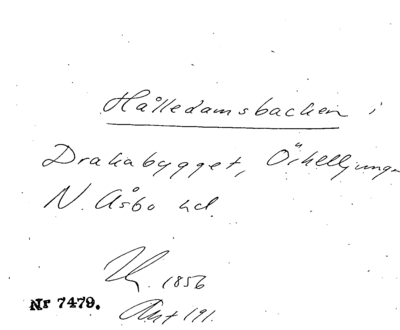 Hålledamsbacken i
Drakabygget, Örkelljunga
N. Åsbo hd.
1856
Nr 7479.
Ant 191.